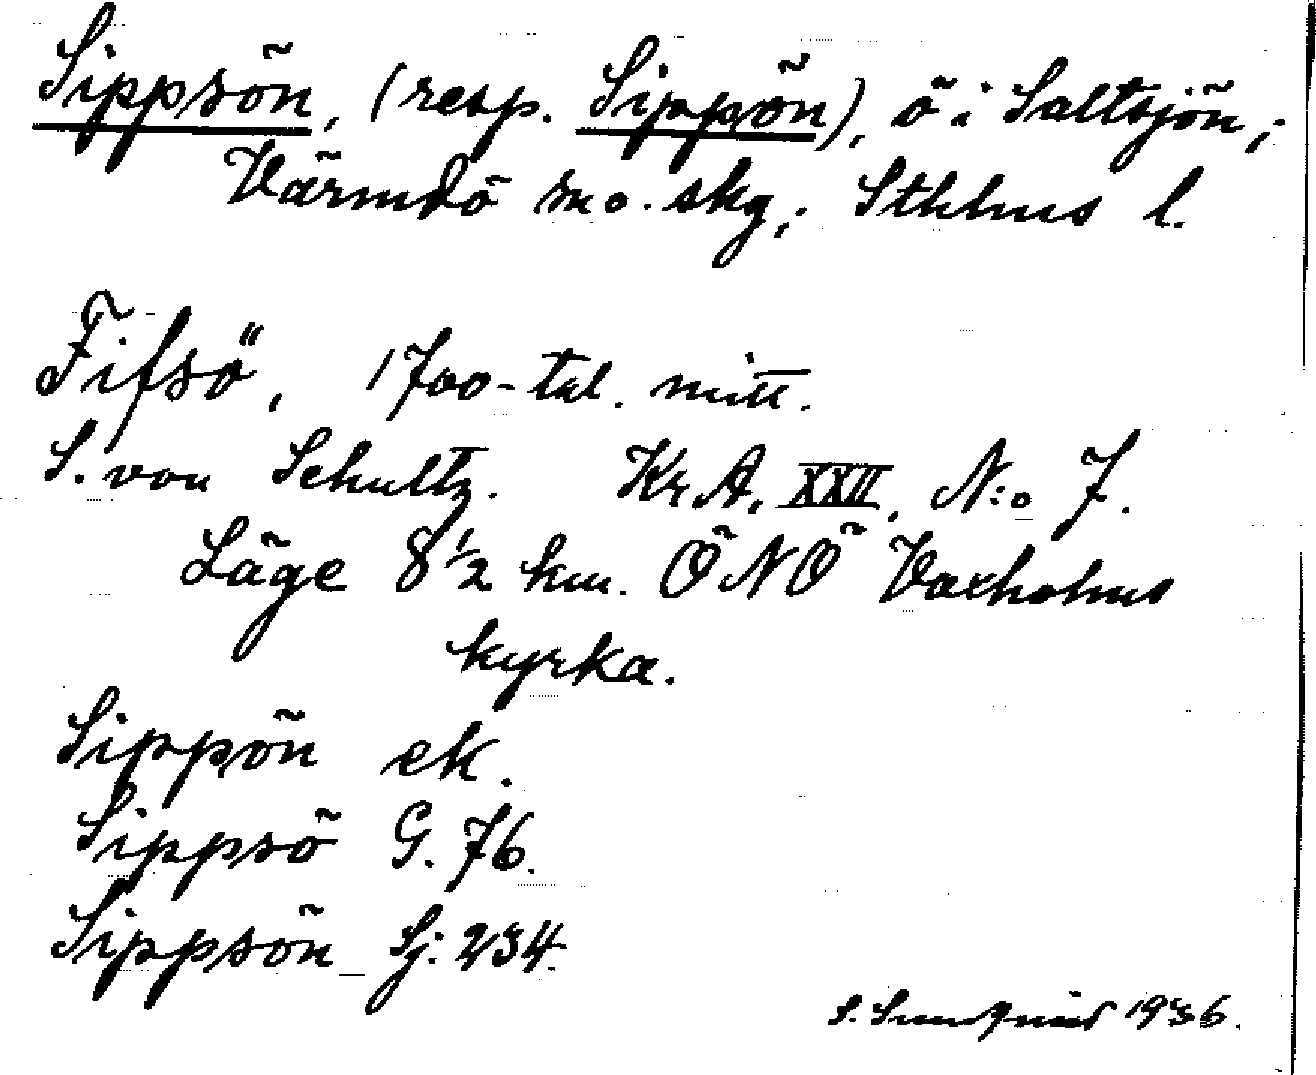 Sippsön, (resp. Sippön), ö i Saltsjön,;
Värmdö sn o. skg,; Sthlms l.
Fifsö, 1700-tal. mitt.
S. von Schultz. Kr.A, XXII, N:o 7.
Läge 8 1/2 km. ÖNÖ Vaxholms
kyrka.
Sippön ek.
Sippsö G. 76.
Sippsön Sj: 234.
S. 1936.